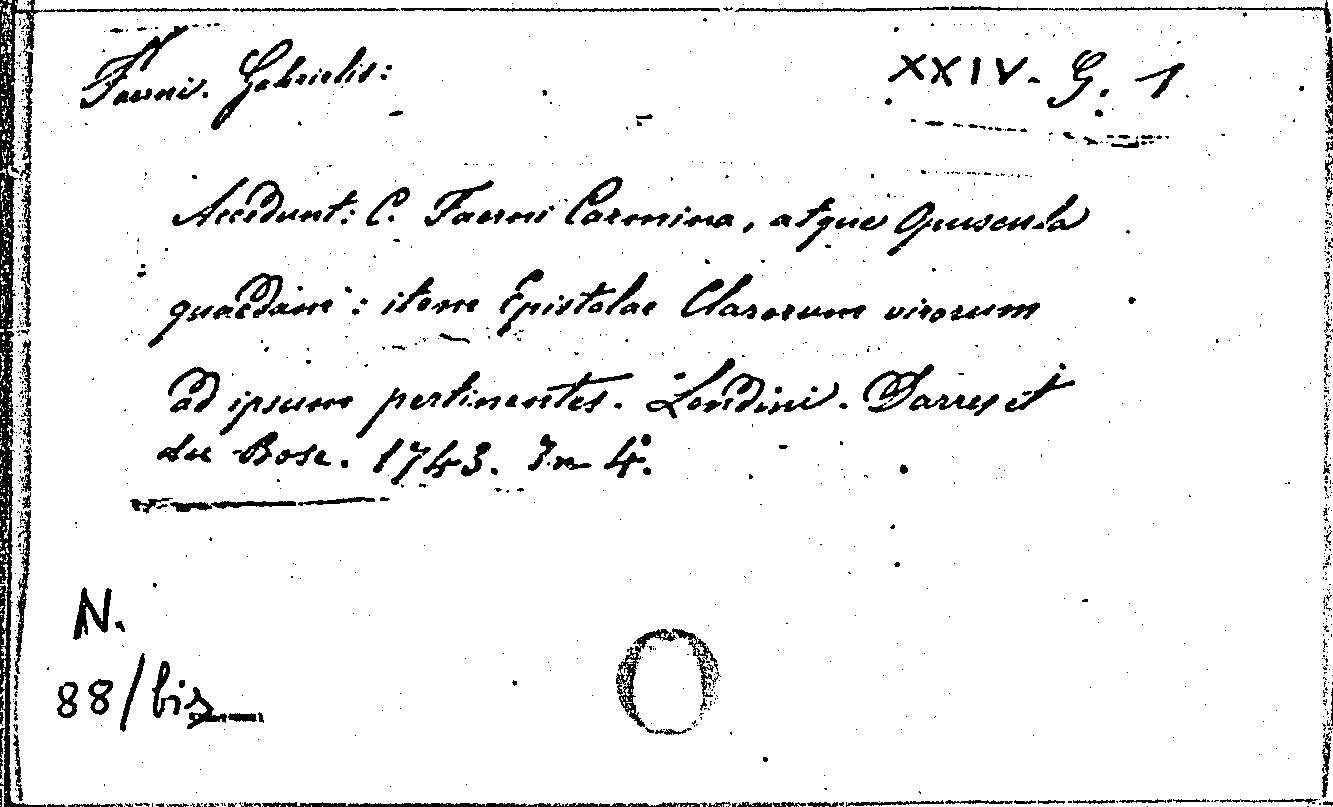 Faerni. Gabrielis:
XXIV. G. 1
Accedunt: C. Faerni Carmina, atque Opuscula
quaedam: item Epistolae Clarorum virorum
ad ipsum pertinentes. Londini. Darres et
du Bosc. 1743. In 4º.
N.
88/bis